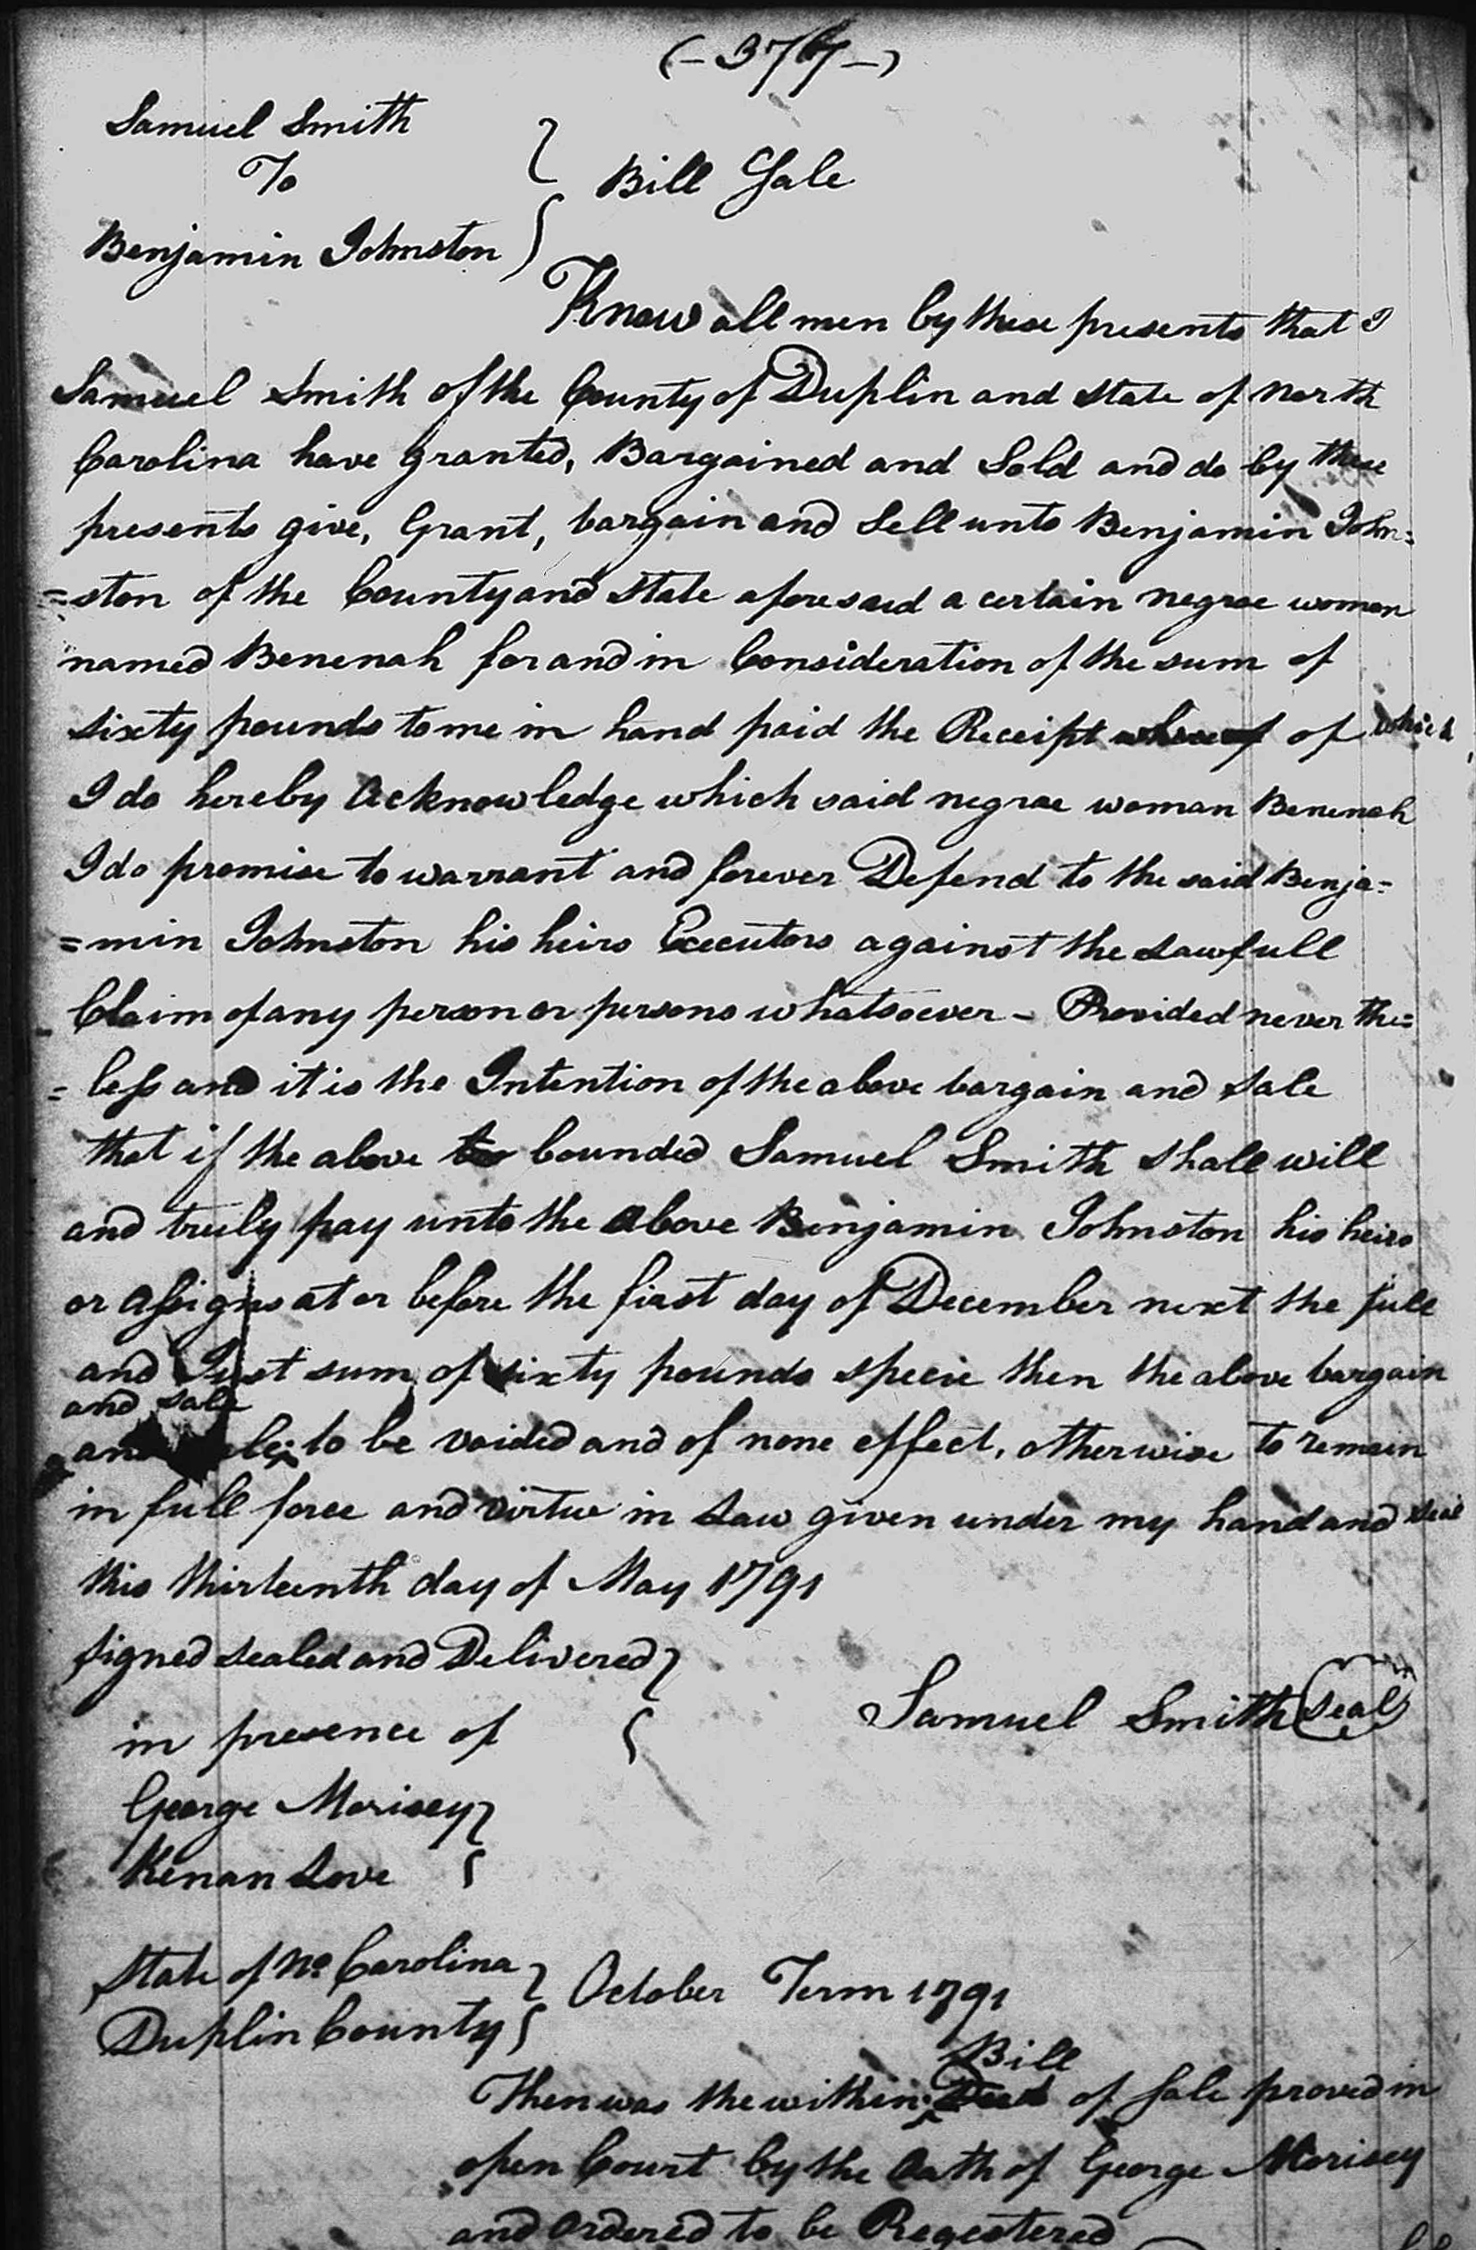 (-377-)
Samuel Smith
To
Bill Sale
Benjamin Johnston
Know all men by these presents that I
Samuel Smith of the County of Duplin and State of North
Carolina have granted, Bargained and Sold and do by these
presents give, Grant, bargain and Sell unto Benjamin John=
=ston of the County and State aforesaid a certain negroe woman
named Benenah for and in Consideration of the sum of
sixty pounds to me in hand paid the Receipt whereof of which
I do hereby Acknowledge which said negroe woman Benenah
I do promise to warrant and forever Defend to the said Benja=
=min Johnston his heirs Executors against the Lawfull
Claim of any person or persons whatsoever - Provided never the=
=less and it is the Intention of the above bargain and Sale
that if the above bounded Samuel Smith shall will
and truly pay unto the above Benjamin Johnston his heirs
or assigns at or before the first day of December next the full
and Just sum of sixty pounds specie then the above bargain
and sale
and to be voided and of none effect, otherwise to remain
in full force and virtue in Law given under my hand and seal
this thirteenth day of May 1791
Signed sealed and Delivered
in presence of
Samuel Smith Seal
George Morisey
Kenan Love
State of No Carolina
October Term 1791
Duplin County
Bill
Then was the within Deed of Sale proved in
open Court by the Oath of George Morisey
and ordered to be Regestered